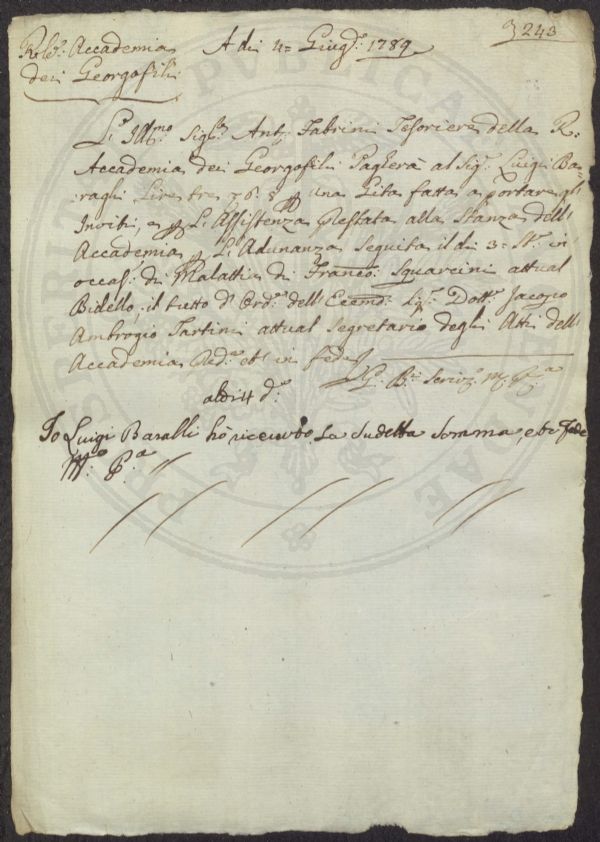 3 243
Rle. Accademia
dei Georgofili
A dì 4= Giug. 1789
L'Illmo. Sigr. Ant. Fabrini Tesoriere della R.
Accademia dei Georgofili Pagherà al Sigr. Luigi Ba=
raghi Lire tre una Gita fatta a portare gl'
Inviti, e L'Assistenza Prestata alla Stanza dell'
Accademia L'Adunanza seguita il dì 3. St. in
occas. di Malattia di Franco. Squarcini attual
Bidello, il tutto d'Ord. dell'Ecemo. Sig. Dott. Jacopo
Ambrogio Tartini attual Segretario degli Atti dell'
Accademia in fede
G. B.
adì 4 do.
Io Luigi Baralli hò riceuto La Sudetta Somma Fede
Mo. Pa.
PUBLICAE
PROSPERITATI